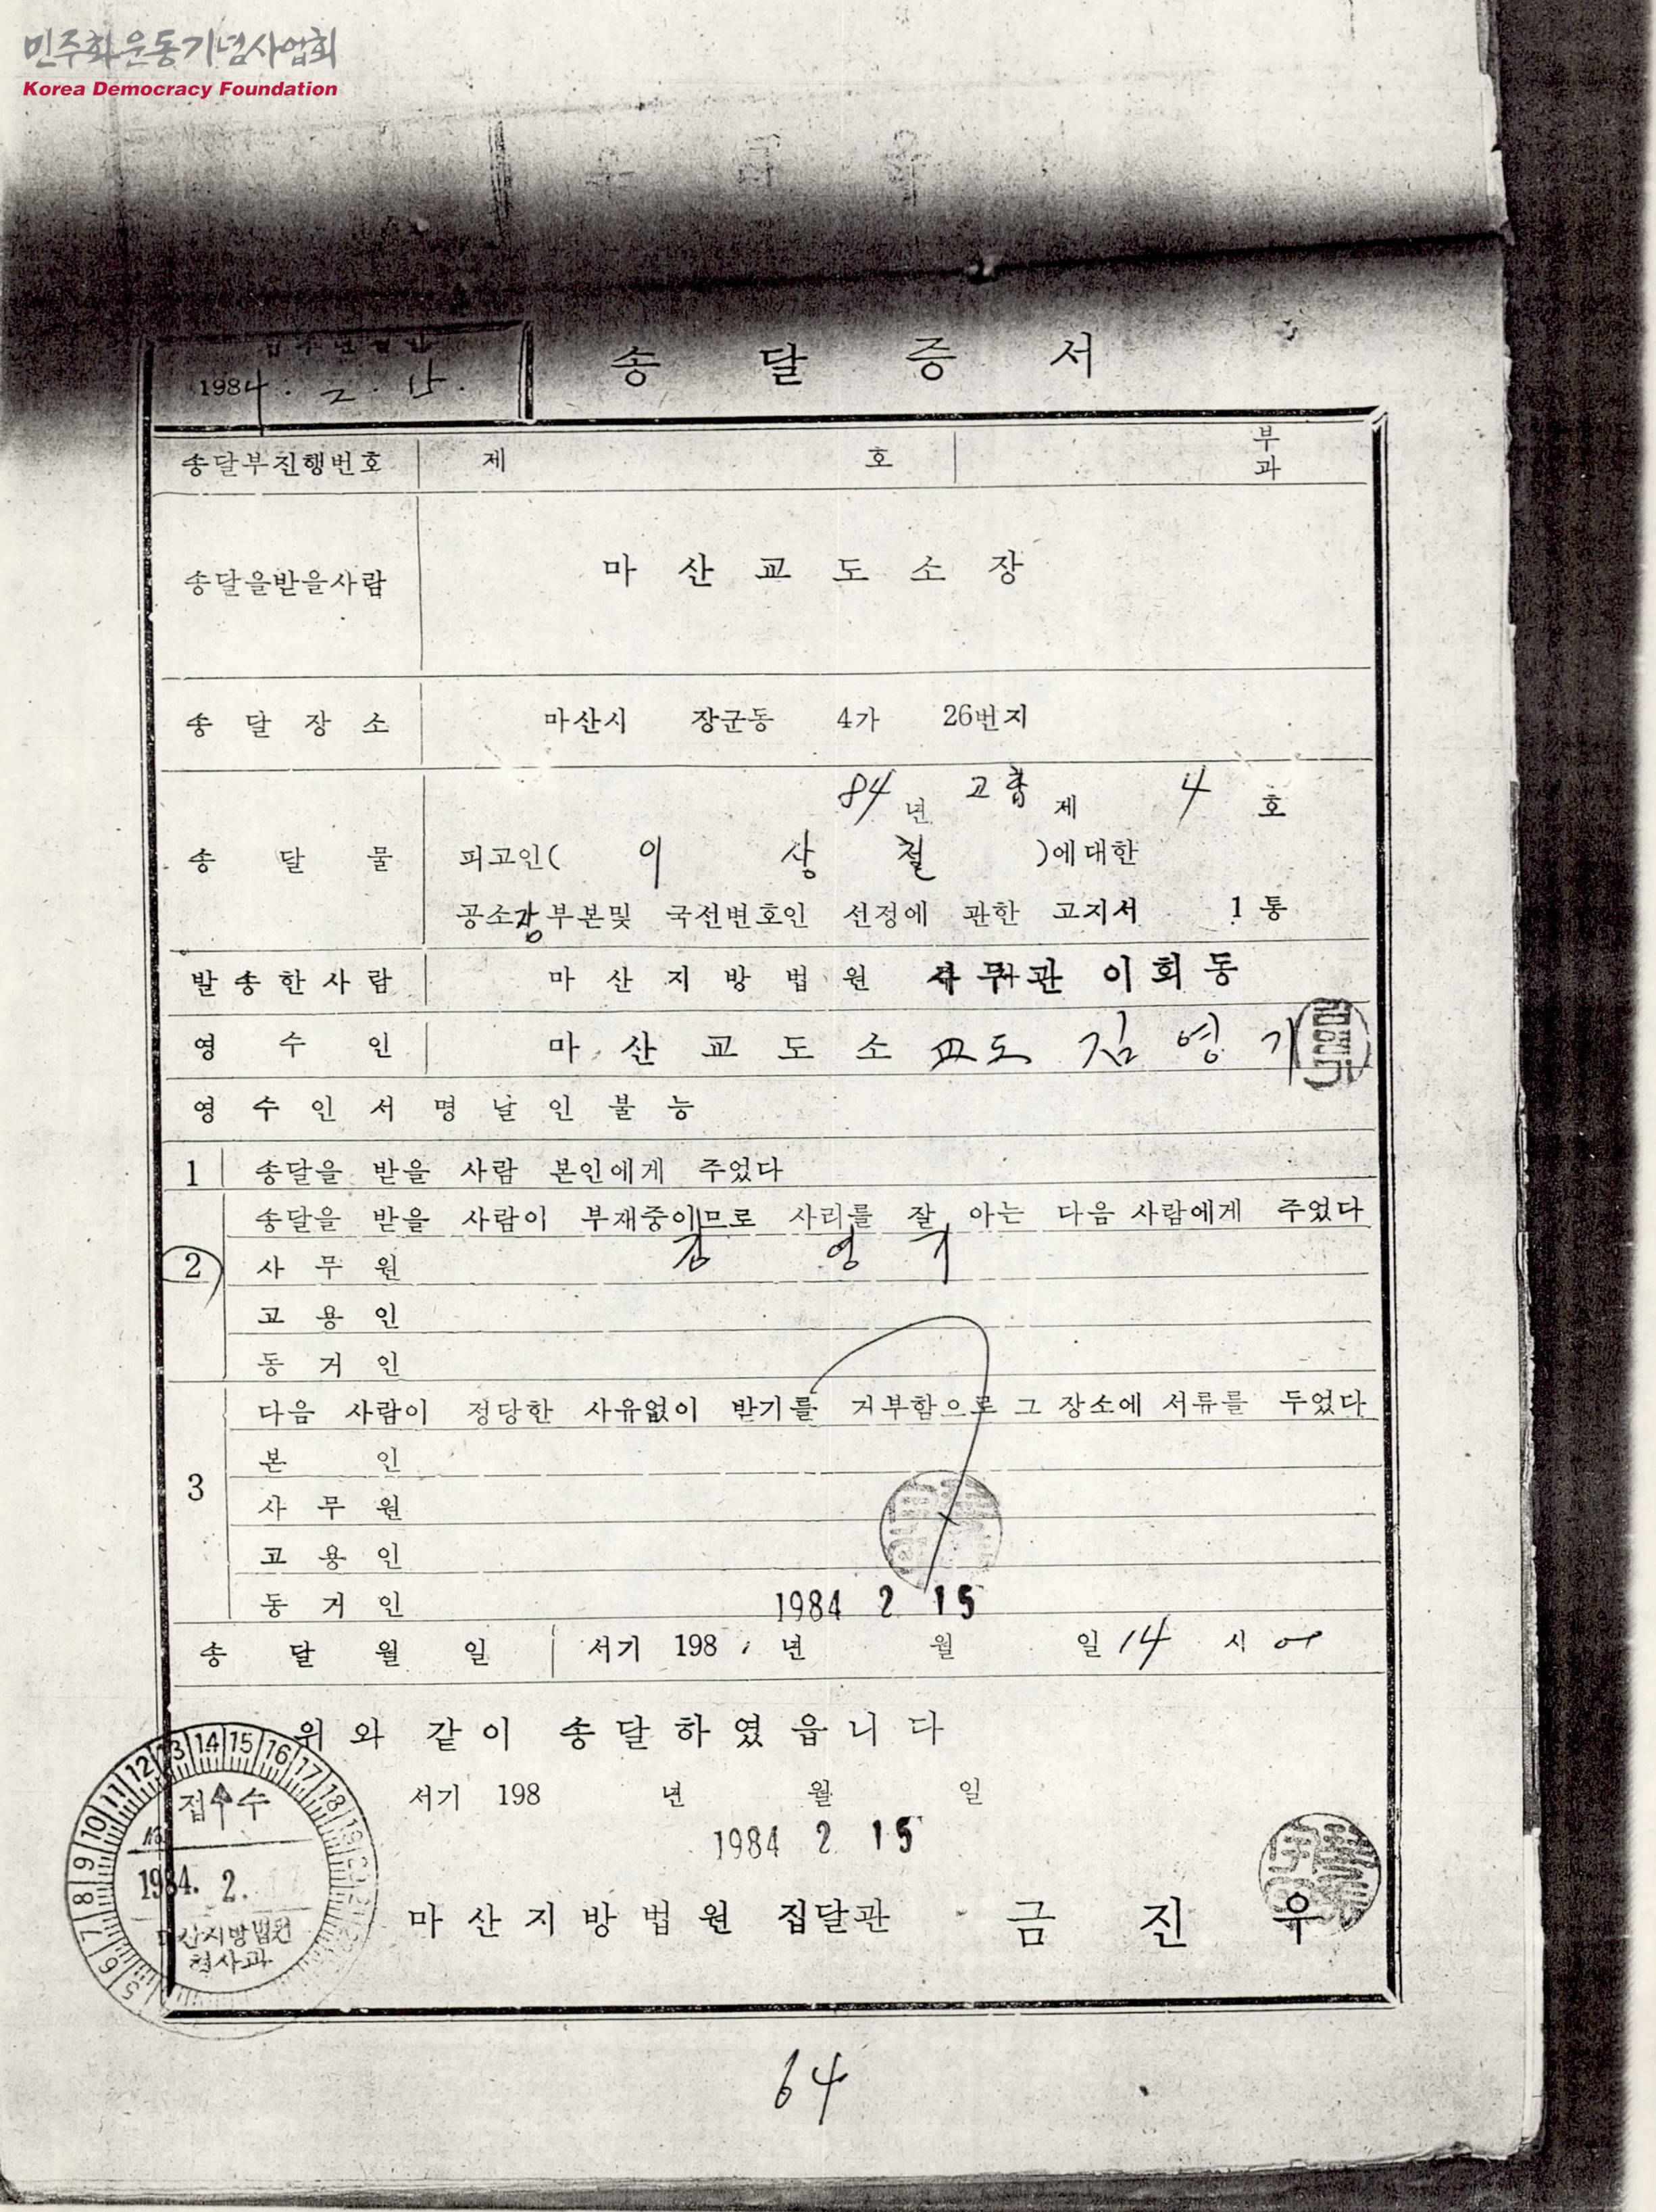 민주화운동기념사업회
Korea Democracy Foundation
송 달 증 서
1984. 2. 15.
송달부진행번호 제 호 부 과
송달을받을사람 마 산 교 도 소 장
송 달 장 소 마산시 장군동 4가 26번지
84년 고합 제 4 호
송 달 물 피고인( 이 상 철 )에대한
공소장부본및 국선변호인 선정에 관한 고지서 1 통
발 송 한 사 람 마 산 지 방 법 원 사무관 이 회 동
영 수 인 마 산 교 도 소 교도 김 영 기
영 수 인 서 명 날 인 불 능
1 송달을 받을 사람 본인에게 주었다
송달을 받을 사람이 부재중이므로 사리를 잘 아는 다음 사람에게 주었다
2 사 무 원 김 영 기
고 용 인
동 거 인
다음 사람이 정당한 사유없이 받기를 거부함으로 그 장소에 서류를 두었다
본 인
3 사 무 원
고 용 인
동 거 인
1984 2 15
송 달 월 일 서기 198 년 월 일 14 시
위 와 같 이 송 달 하 였 읍 니 다
서기 198 년 월 일
1984 2 15
마 산 지 방 법 원 집달관 금 진 우
5 6 7 8 9 10 11 12 13 14 15 16 17 18 19
접 수
1984. 2.
마산지방법원
형사과
64